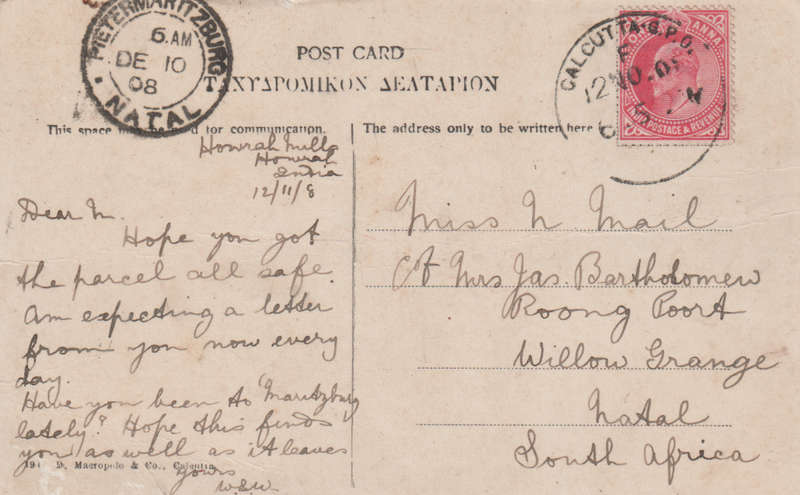 PIETERMARITZBURG
6. AM
DE 10
08
NATAL
POST CARD
ΤΑΧΥΔΡΟΜΙΚΟΝ ΔΕΛΤΑΡΙΟΝ
CALCUTTA G.P.O.
12 NO
ANNA
INDIA POSTAGE & REVENUE
This space may be used for communication.
The address only to be written here
Howrah Mills
Howrah
India
12/11/8
Dear M.
Hope you got
the parcel all safe.
Am expecting a letter
from you now every
day.
Have you been to Maritzburg
lately? Hope this finds
you as well as it leaves
Yours
W.S.W.
D. Macropolo & Co., Calcutta
Miss N Mail
c/o Mrs Jas. Bartholomew
Roong Poort
Willow Grange
Natal
South Africa